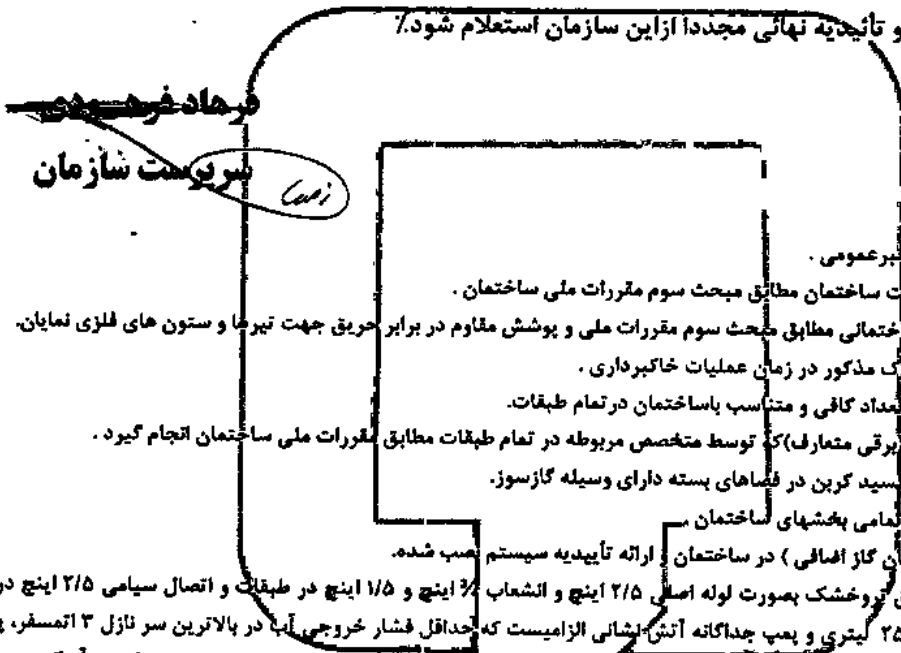 و تأئیدیه نهائی مجددا ازاین سازمان استعلام شود٪
فرهاد فرهودی
سرپرست سازمان
عمومی .
ساختمان مطابق مبحث سوم مقررات ملی ساختمان .
مطابق مبحث سوم مقررات ملی و پوشش مقاوم در برابر حریق جهت تیرها و ستون های فلزی نمایان.
مذکور در زمان عملیات خاکبرداری .
تعداد کافی و متناسب باساختمان درتمام طبقات.
برقی متعارف)که توسط متخصص مربوطه در تمام طبقات مطابق مقررات ملی ساختمان انجام گیرد .
کربن در فضاهای بسته دارای وسیله گازسوز.
تمامی بخشهای ساختمان
گاز اضافی ) در ساختمان و ارائه تأییدیه سیستم نصب شده.
تروخشک بصورت لوله اصلی ۲/۵ اینچ و انشعاب ¾ اینچ و ۱/۵ اینچ در طبقات و اتصال سیامی ۲/۵ اینچ در
لیتری و پمپ جداگانه آتش نشانی الزامیست که حداقل فشار خروجی آب در بالاترین سر نازل ۳ اتمسفر،